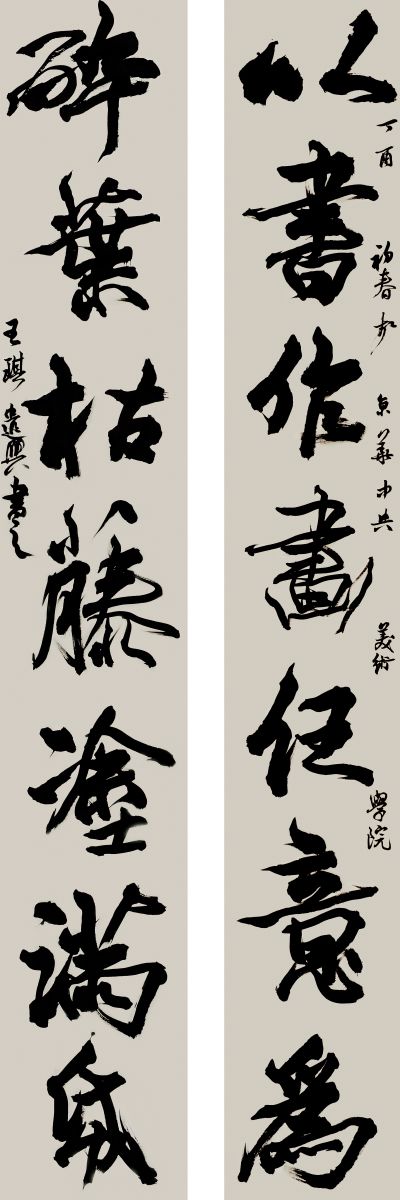 以書作畫任意爲
丁酉初春於京華中央美術學院
碎葉枯藤塗滿紙
王琪遣興書之